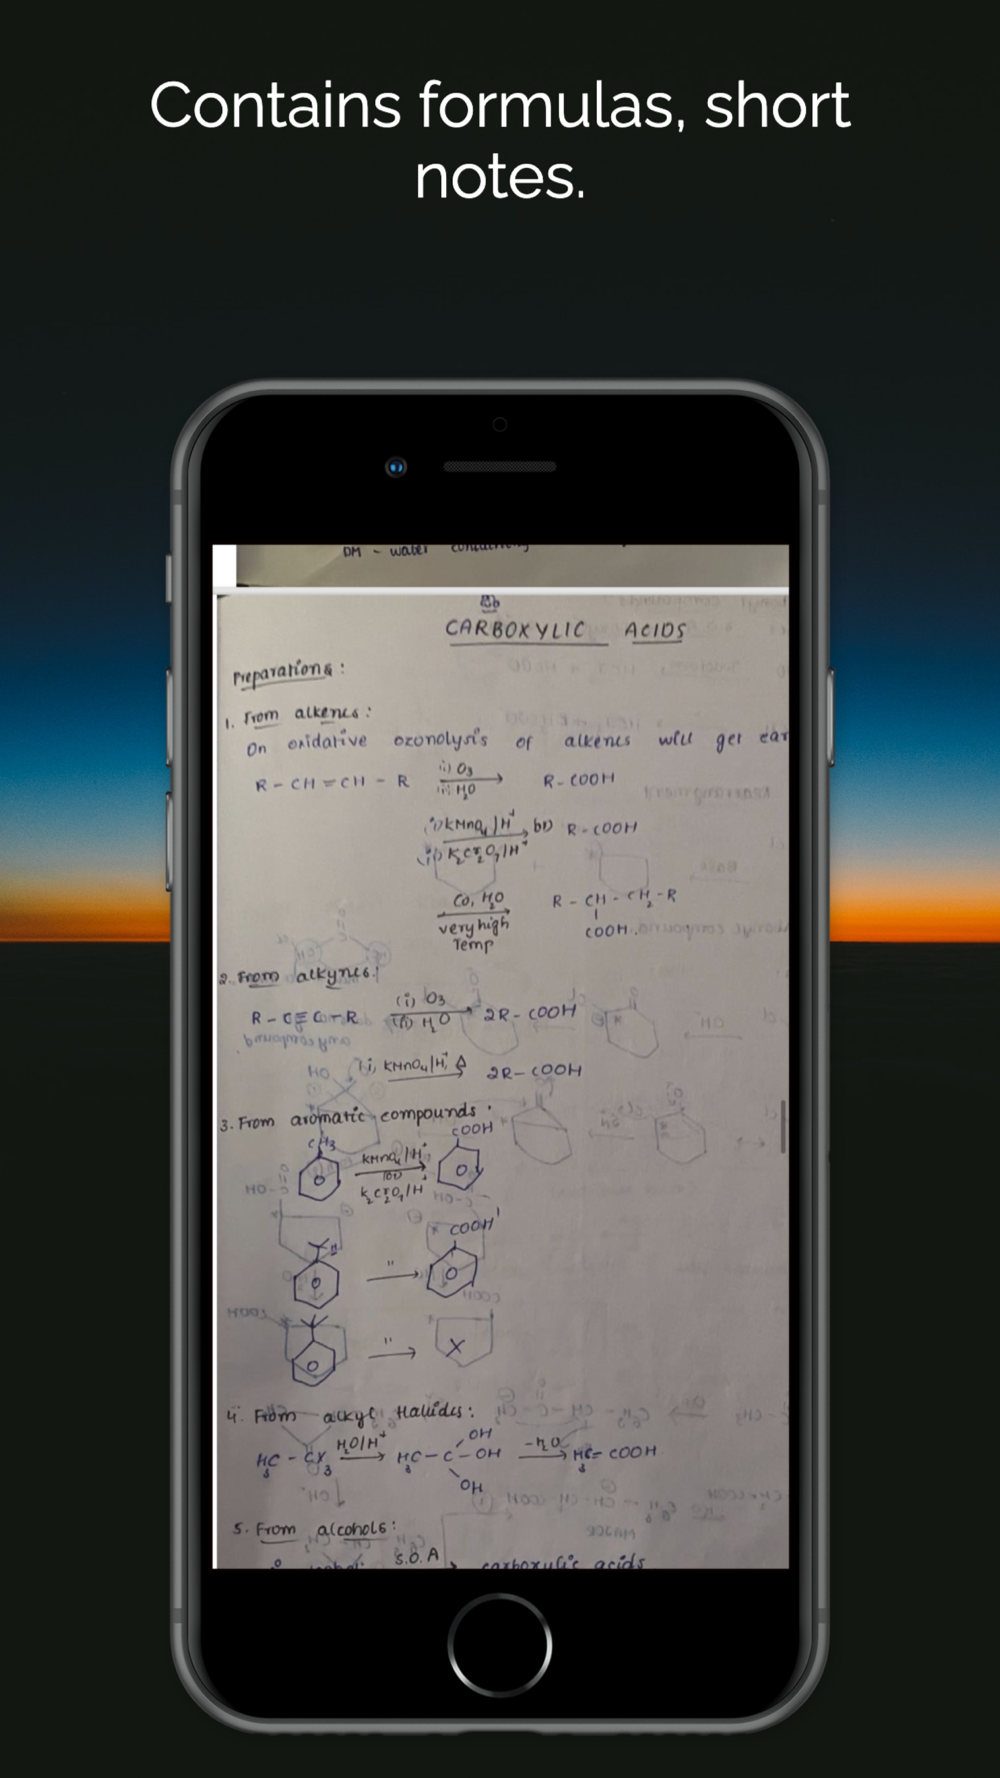 Contains formulas, short
notes.
DM - water containing
CARBOXYLIC ACIDS
Preparations:
1. From alkenes:
On oxidative ozonolysis of alkenes will get car
R - CH = CH - R (i) O₃ (ii) H₂O → R - COOH
(i) KMnO₄/H⁺ (ii) K₂Cr₂O₇/H⁺ → R - COOH
CO, H₂O very high Temp → R - CH - CH₂ - R
COOH
2. From alkynes:
R - C ≡ C - R (i) O₃ (ii) H₂O → 2R - COOH
KMnO₄/H⁺, Δ → 2R - COOH
3. From aromatic compounds
CH₃ KMnO₄/H⁺ (or) K₂Cr₂O₇/H⁺ → COOH
H " → COOH
" → X
4. From alkyl Halides:
H₃C - CX₃ H₂O/H⁺ → H₃C - C - OH OH OH -H₂O → H₃C - COOH
5. From alcohols:
S.O.A → carboxylic acids